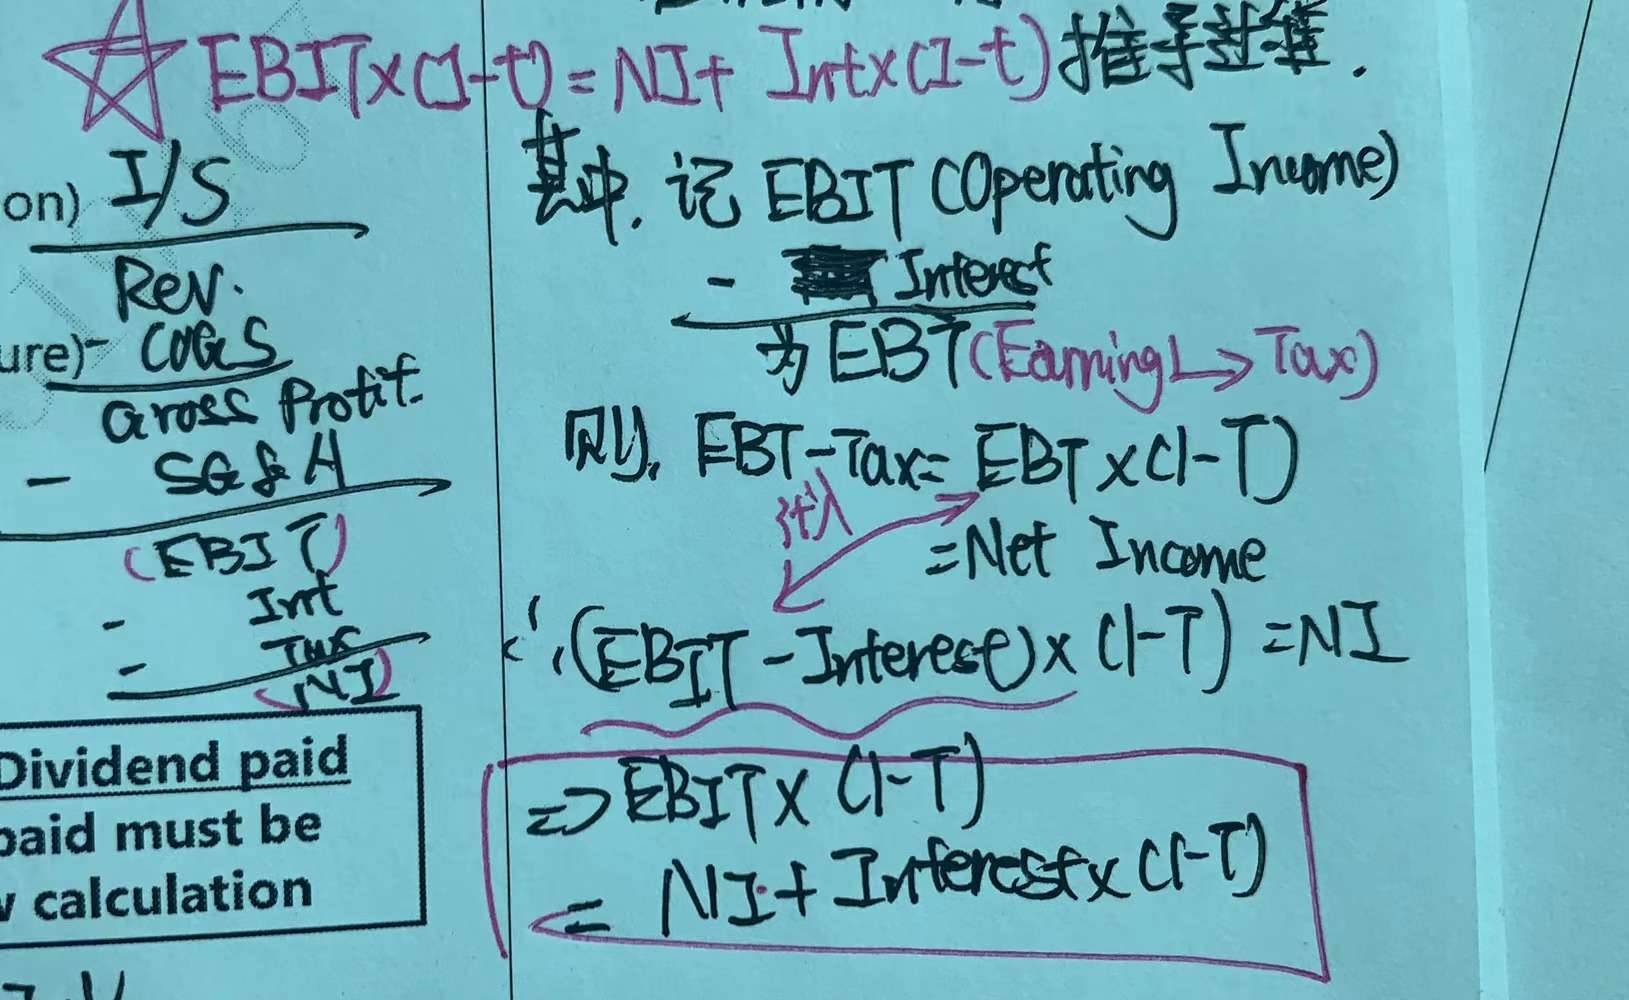 EBIT×(1-t)=NI+ Int×(1-t)推导过程.
on) I/S
Rev.
ure)- COGS
Gross Profit.
- SG&A
(EBIT)
- Int
- Tax
(NI)
Dividend paid
paid must be
calculation
其中,记 EBIT (Operating Income)
- Interest
为 EBT(Earning→Tax)
则, EBT-Tax= EBT×(1-T)
代入
=Net Income
(EBIT-Interest)×(1-T)=NI
=>EBIT×(1-T)
= NI+Interest×(1-T)